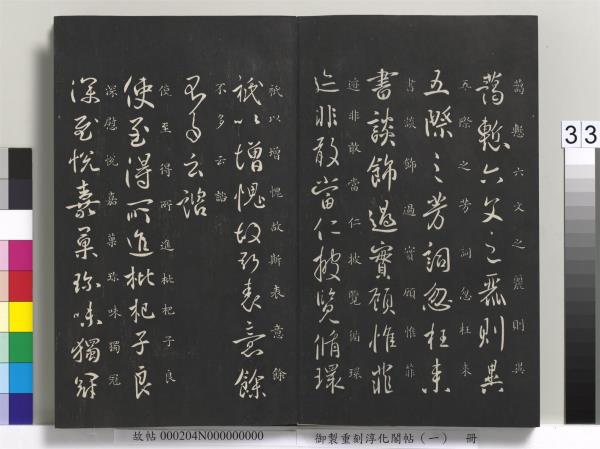 藹慙六文之麗則異
藹慙六文之麗則異
五際之芳詞忽枉來
五際之芳詞忽枉来
書談飾過實顧惟菲
書談飾過實顧惟菲
迹非敢當仁披覽循環
迹非敢當仁披覽循環
祇以增愧故斯表意餘
祇以增愧故斯表意餘
不多云諮
不多云諮
使至得所進枇杷子良
使至得所進枇杷子良
深慰悅嘉菓珍味獨冠
深慰悅嘉菓珍味獨冠
33
故帖 000204N000000000
御製重刻淳化閣帖(一) 冊